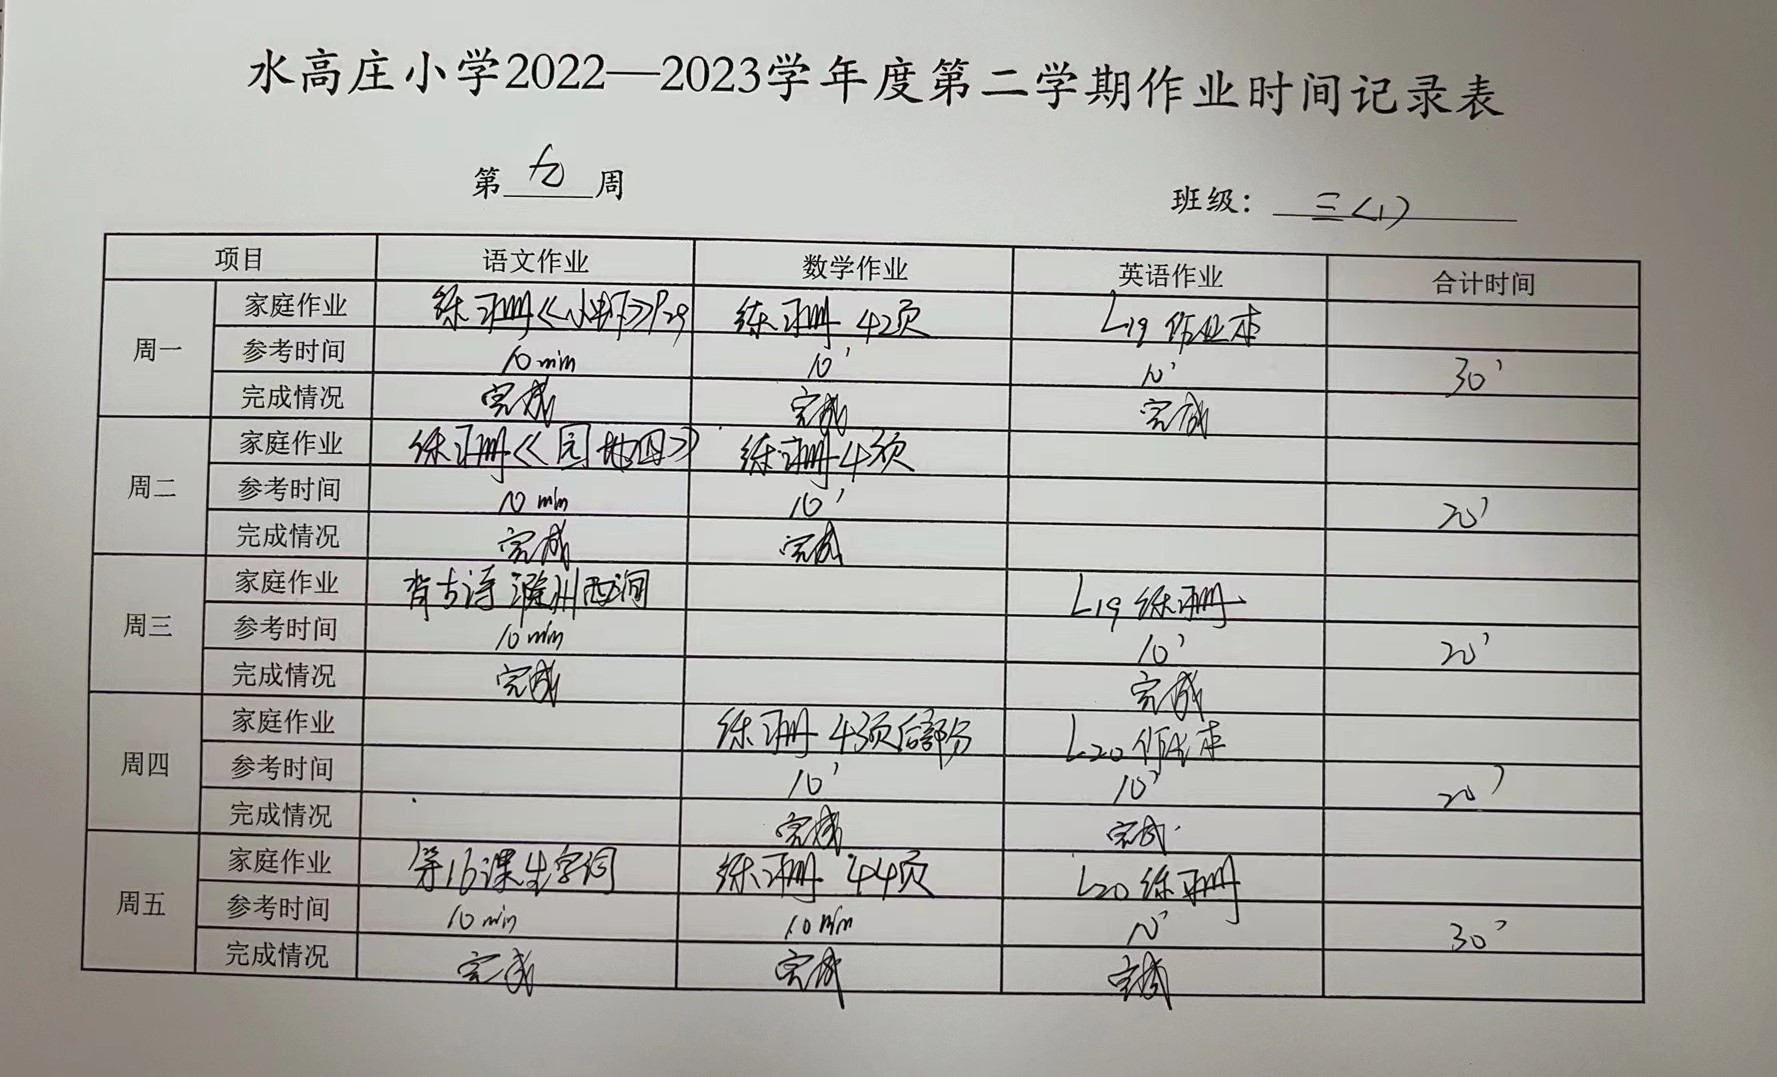 水高庄小学2022—2023学年度第二学期作业时间记录表
第九周 班级：三(1)
项目 语文作业 数学作业 英语作业 合计时间
周一
家庭作业 练习册《小虾》P29 练习册 42页 L19 作业本
参考时间 10min 10' 10' 30'
完成情况 完成 完成 完成
周二
家庭作业 练习册《园地四》 练习册43页
参考时间 10 min 10' 20'
完成情况 完成 完成
周三
家庭作业 背古诗 滁州西涧 L19 练习册
参考时间 10min 10' 20'
完成情况 完成 完成
周四
家庭作业 练习册 43页后部分 L20 作业本
参考时间 10' 10' 20'
完成情况 完成 完成
周五
家庭作业 16课生字词 练习册 44页 L20 练习册
参考时间 10min 10min 10' 30'
完成情况 完成 完成 完成